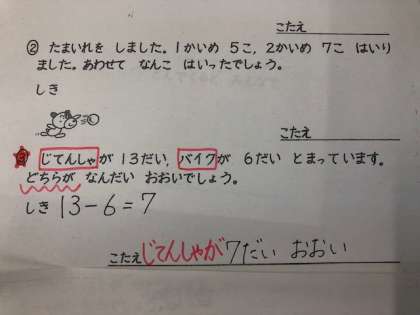 こたえ
② たまいれを しました。1かいめ 5こ, 2かいめ 7こ はいり
ました。あわせて なんこ はいったでしょう。
しき
こたえ
③ じてんしゃが 13だい, バイクが 6だい とまっています。
どちらが なんだい おおいでしょう。
しき 13-6=7
こたえ じてんしゃが7だい おおい